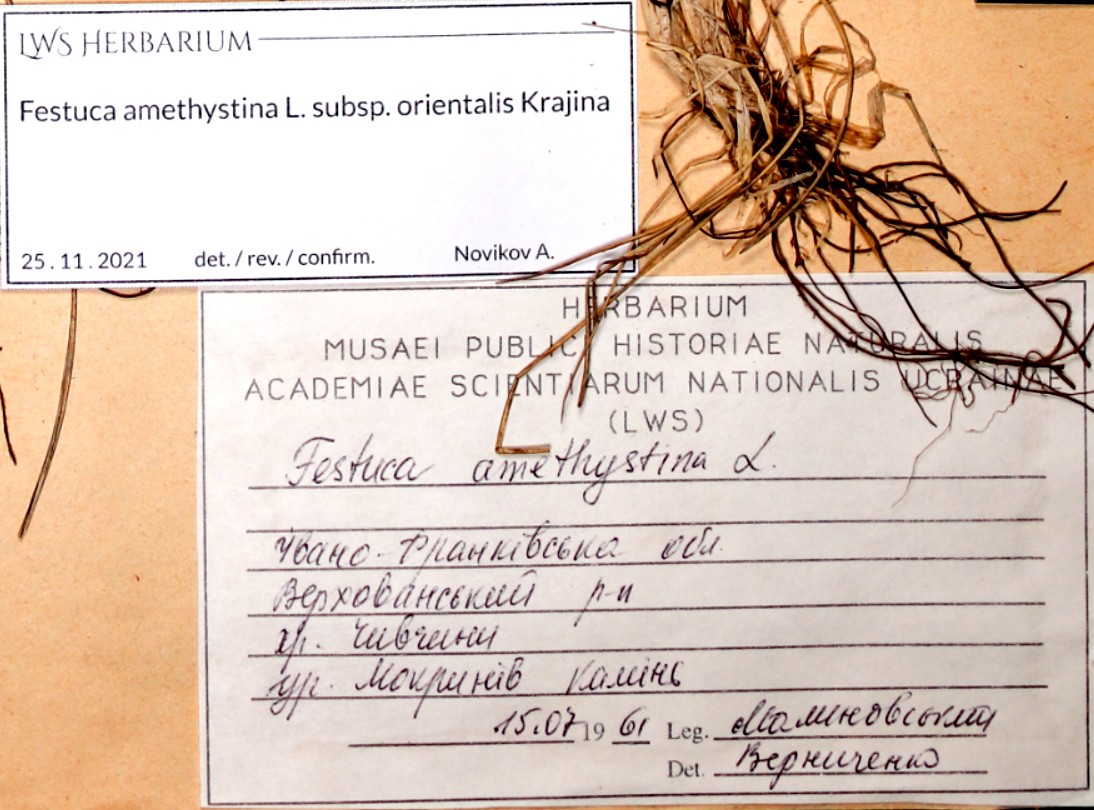 LWS HERBARIUM
Festuca amethystina L. subsp. orientalis Krajina
25.11.2021 det. / rev. / confirm. Novikov A.
HERBARIUM
MUSAEI PUBLICI HISTORIAE NATURALIS
ACADEMIAE SCIENTIARUM NATIONALIS UCRAINAE
(LWS)
Festuca amethystina L.
Івано-Франківська обл.
Верхованський р-н
хр. Чивчини
ур. Мокринів Камінь
15.07 19 61 Leg. Малиновський
Det. Верниченко